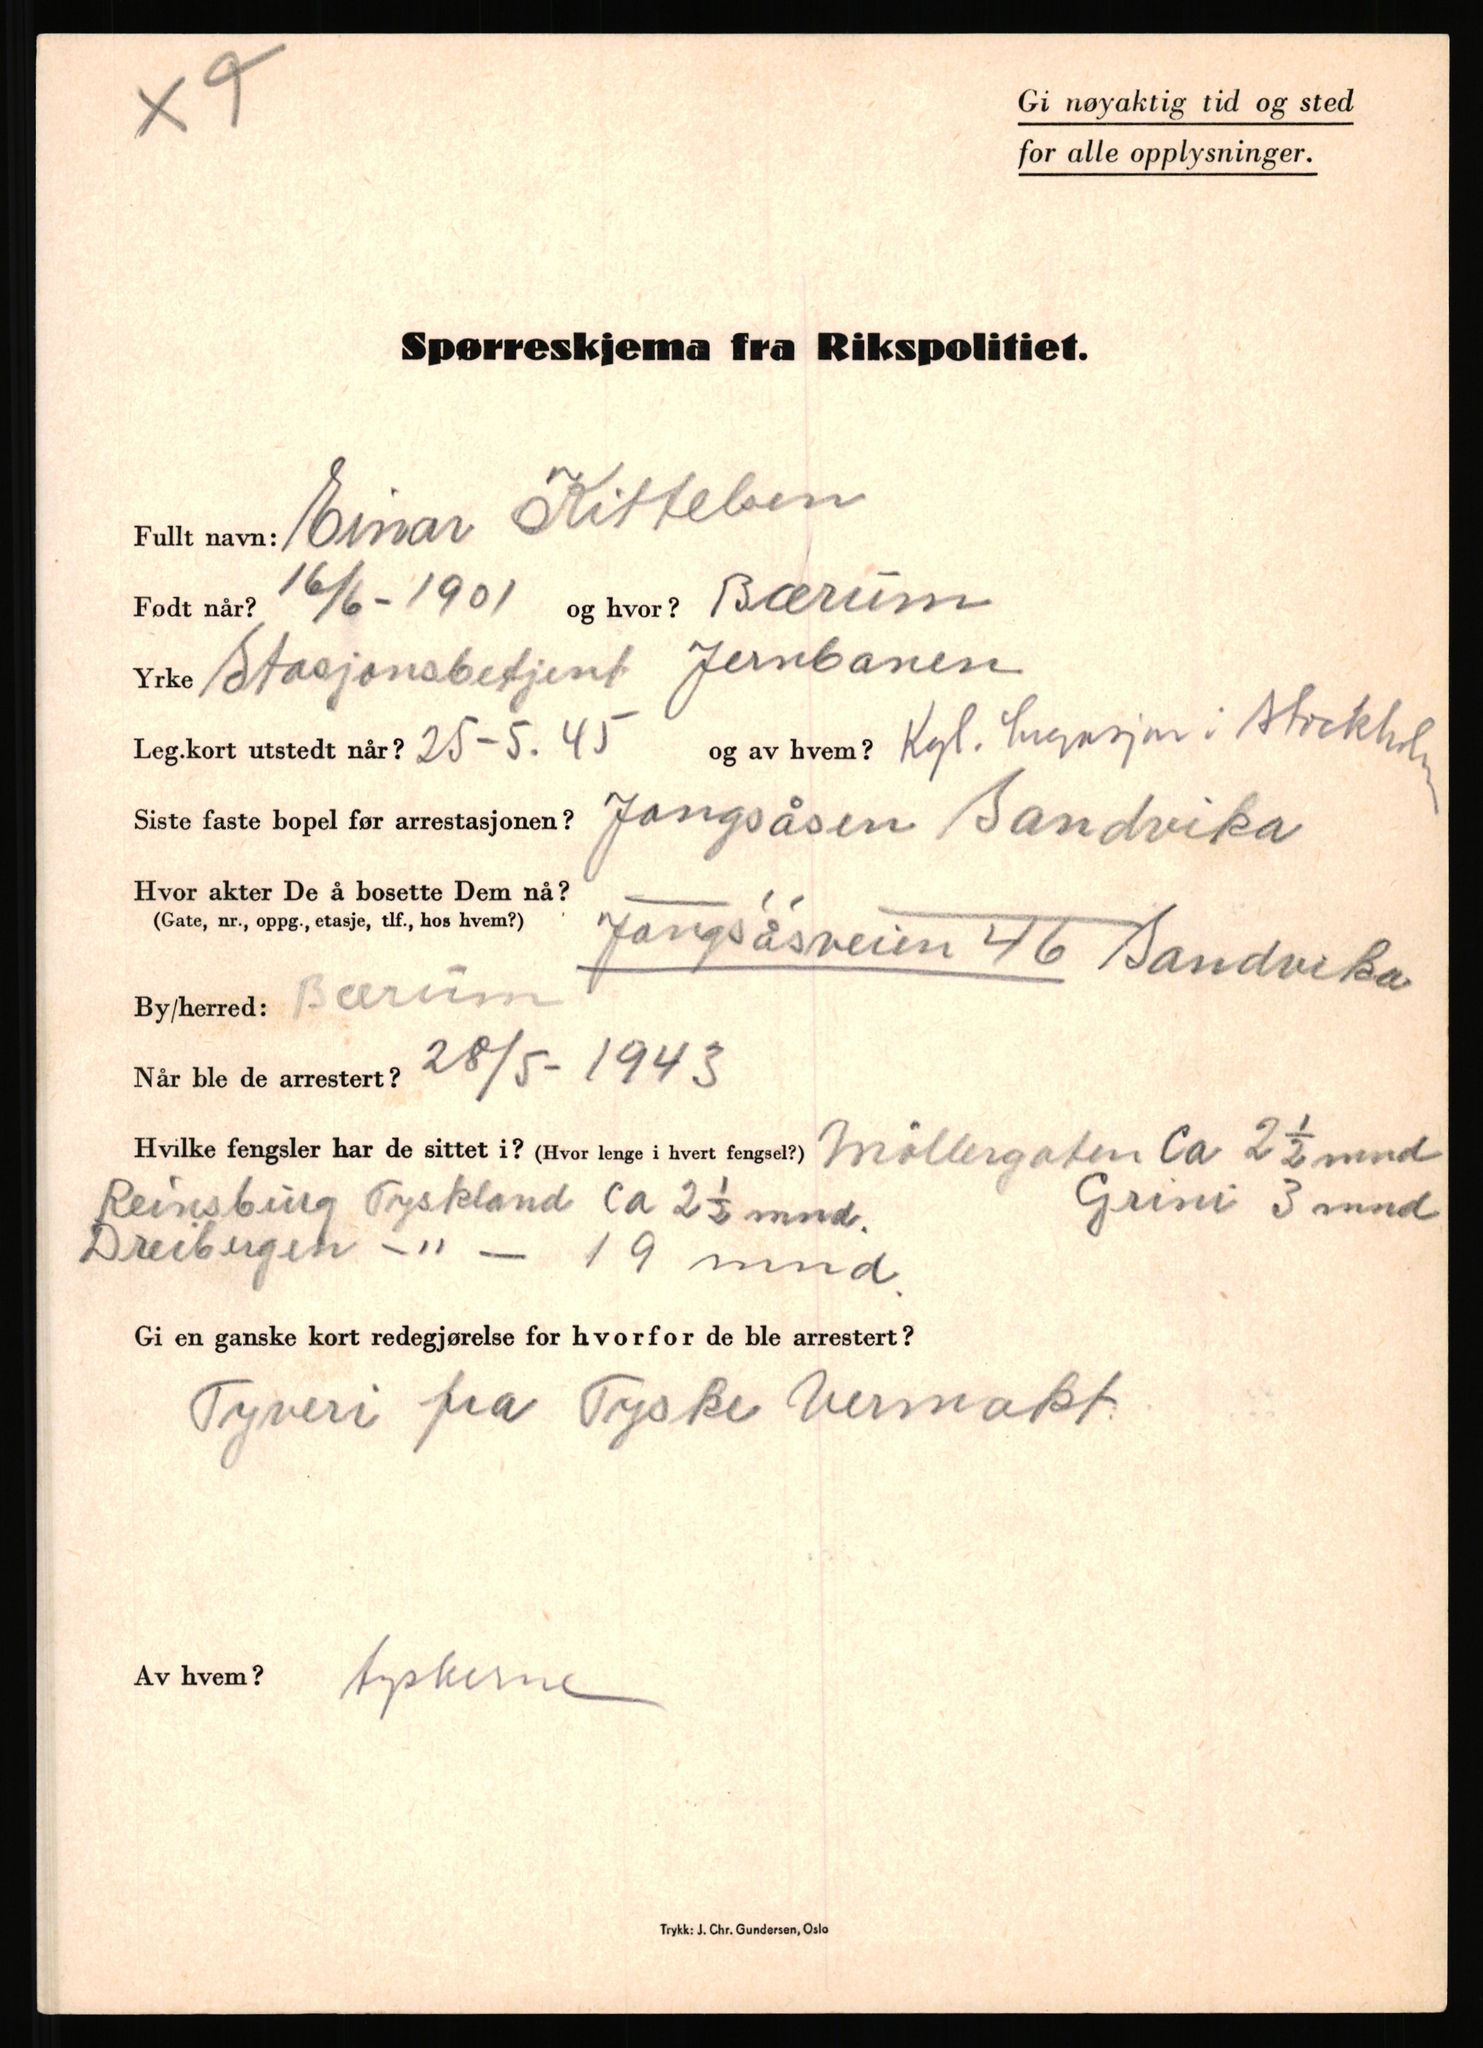 x 9
Gi nøyaktig tid og sted
for alle opplysninger.
Spørreskjema fra Rikspolitiet.
Fullt navn: Einar Kittelsen
Født når? 16/6 - 1901 og hvor? Bærum
Yrke Stasjonsbetjent Jernbanen
Leg.kort utstedt når? 25-5.45 og av hvem? Kgl. legasjon i Stockholm
Siste faste bopel før arrestasjonen? Jongsåsen Sandvika
Hvor akter De å bosette Dem nå?
(Gate, nr., oppg., etasje, tlf., hos hvem?) Jongsåsveien 46 Sandvika
By/herred: Bærum
Når ble de arrestert? 28/5 - 1943
Hvilke fengsler har de sittet i? (Hvor lenge i hvert fengsel?) Møllergaten Ca 2 1/2 mnd
Reinsburg Tyskland Ca 2 1/2 mnd. Grini 3 mnd
Dreibergen -"- 19 mnd.
Gi en ganske kort redegjørelse for hvorfor de ble arrestert?
Tyveri fra Tyske Vermakt.
Av hvem? tyskerne
Trykk: J. Chr. Gundersen, Oslo